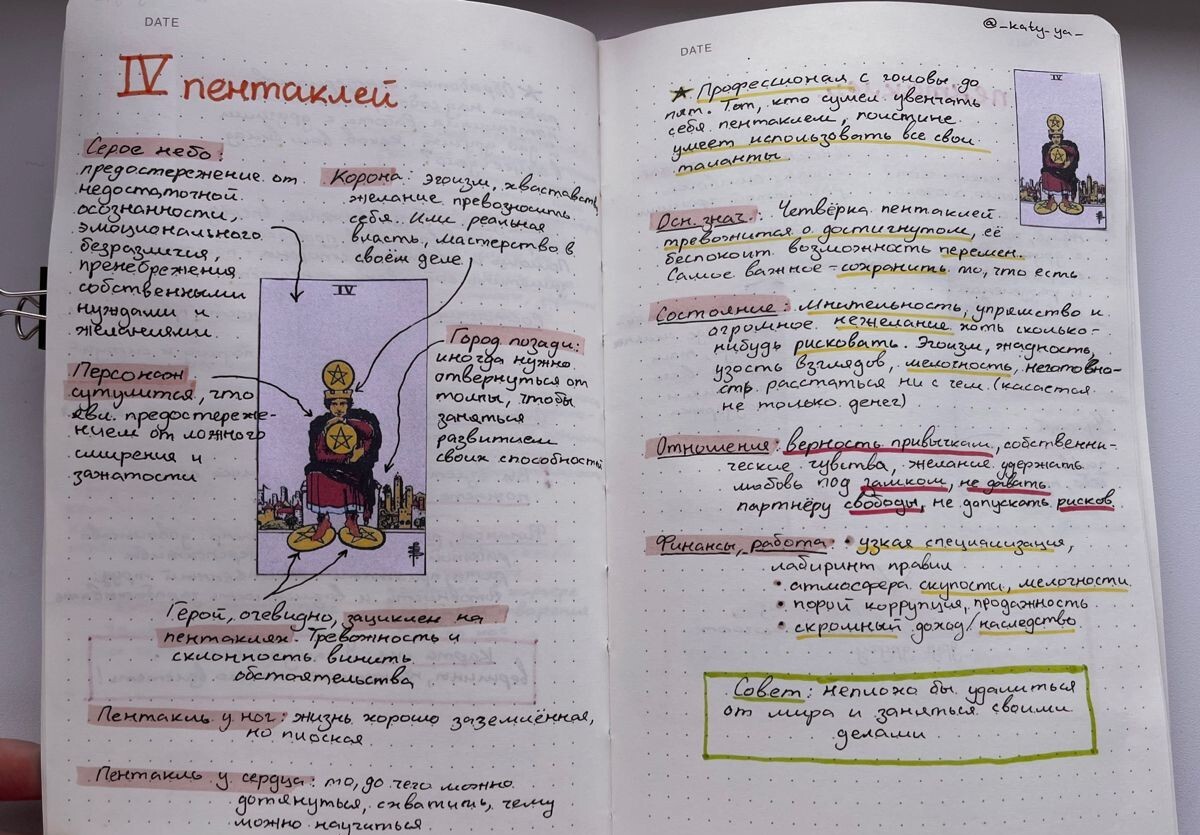 DATE
IV пентаклей
Серое небо:
предостережение от
недостаточной
осознанности,
эмоционального
безразличия,
пренебрежения
собственными
нуждами и
желаниями
Корона: эгоизм, хвастовство,
желание превозносить
себя. Или реальная
власть, мастерство в
своём деле
IV
Персонаж
сутулится, что
явл. предостереже-
нием от ложного
смирения и
зажатости
Город позади:
иногда нужно
отвернуться от
толпы, чтобы
заняться
развитием
своих способностей
Герой, очевидно, зациклен на
пентаклях. Тревожность и
склонность винить
обстоятельства
Пентакль у ног: жизнь хорошо заземлённая,
но плоская
Пентакль у сердца: то, до чего можно
дотянуться, схватить, чему
можно научиться
DATE
@_katy_ya_
★ Профессионал с головы до
пят. Тот, кто сумел увенчать
себя пентаклем, поистине
умеет использовать все свои
таланты
IV
Осн. знач.: Четвёрка пентаклей
тревожится о достигнутом, её
беспокоит возможность перемен.
Самое важное – сохранить то, что есть
Состояние: Мнительность, упрямство и
огромное нежелание хоть сколько-
нибудь рисковать. Эгоизм, жадность,
узость взглядов, мелочность, неготовно-
сть расстаться ни с чем (касается
не только денег)
Отношения: верность привычкам, собственни-
ческие чувства, желание удержать
любовь под замком, не давать
партнёру свободы, не допускать рисков
Финансы, работа: • узкая специализация,
лабиринт правил
• атмосфера скупости, мелочности
• порой коррупция, продажность
• скромный доход/наследство
Совет: неплохо бы удалиться
от мира и заняться своими
делами